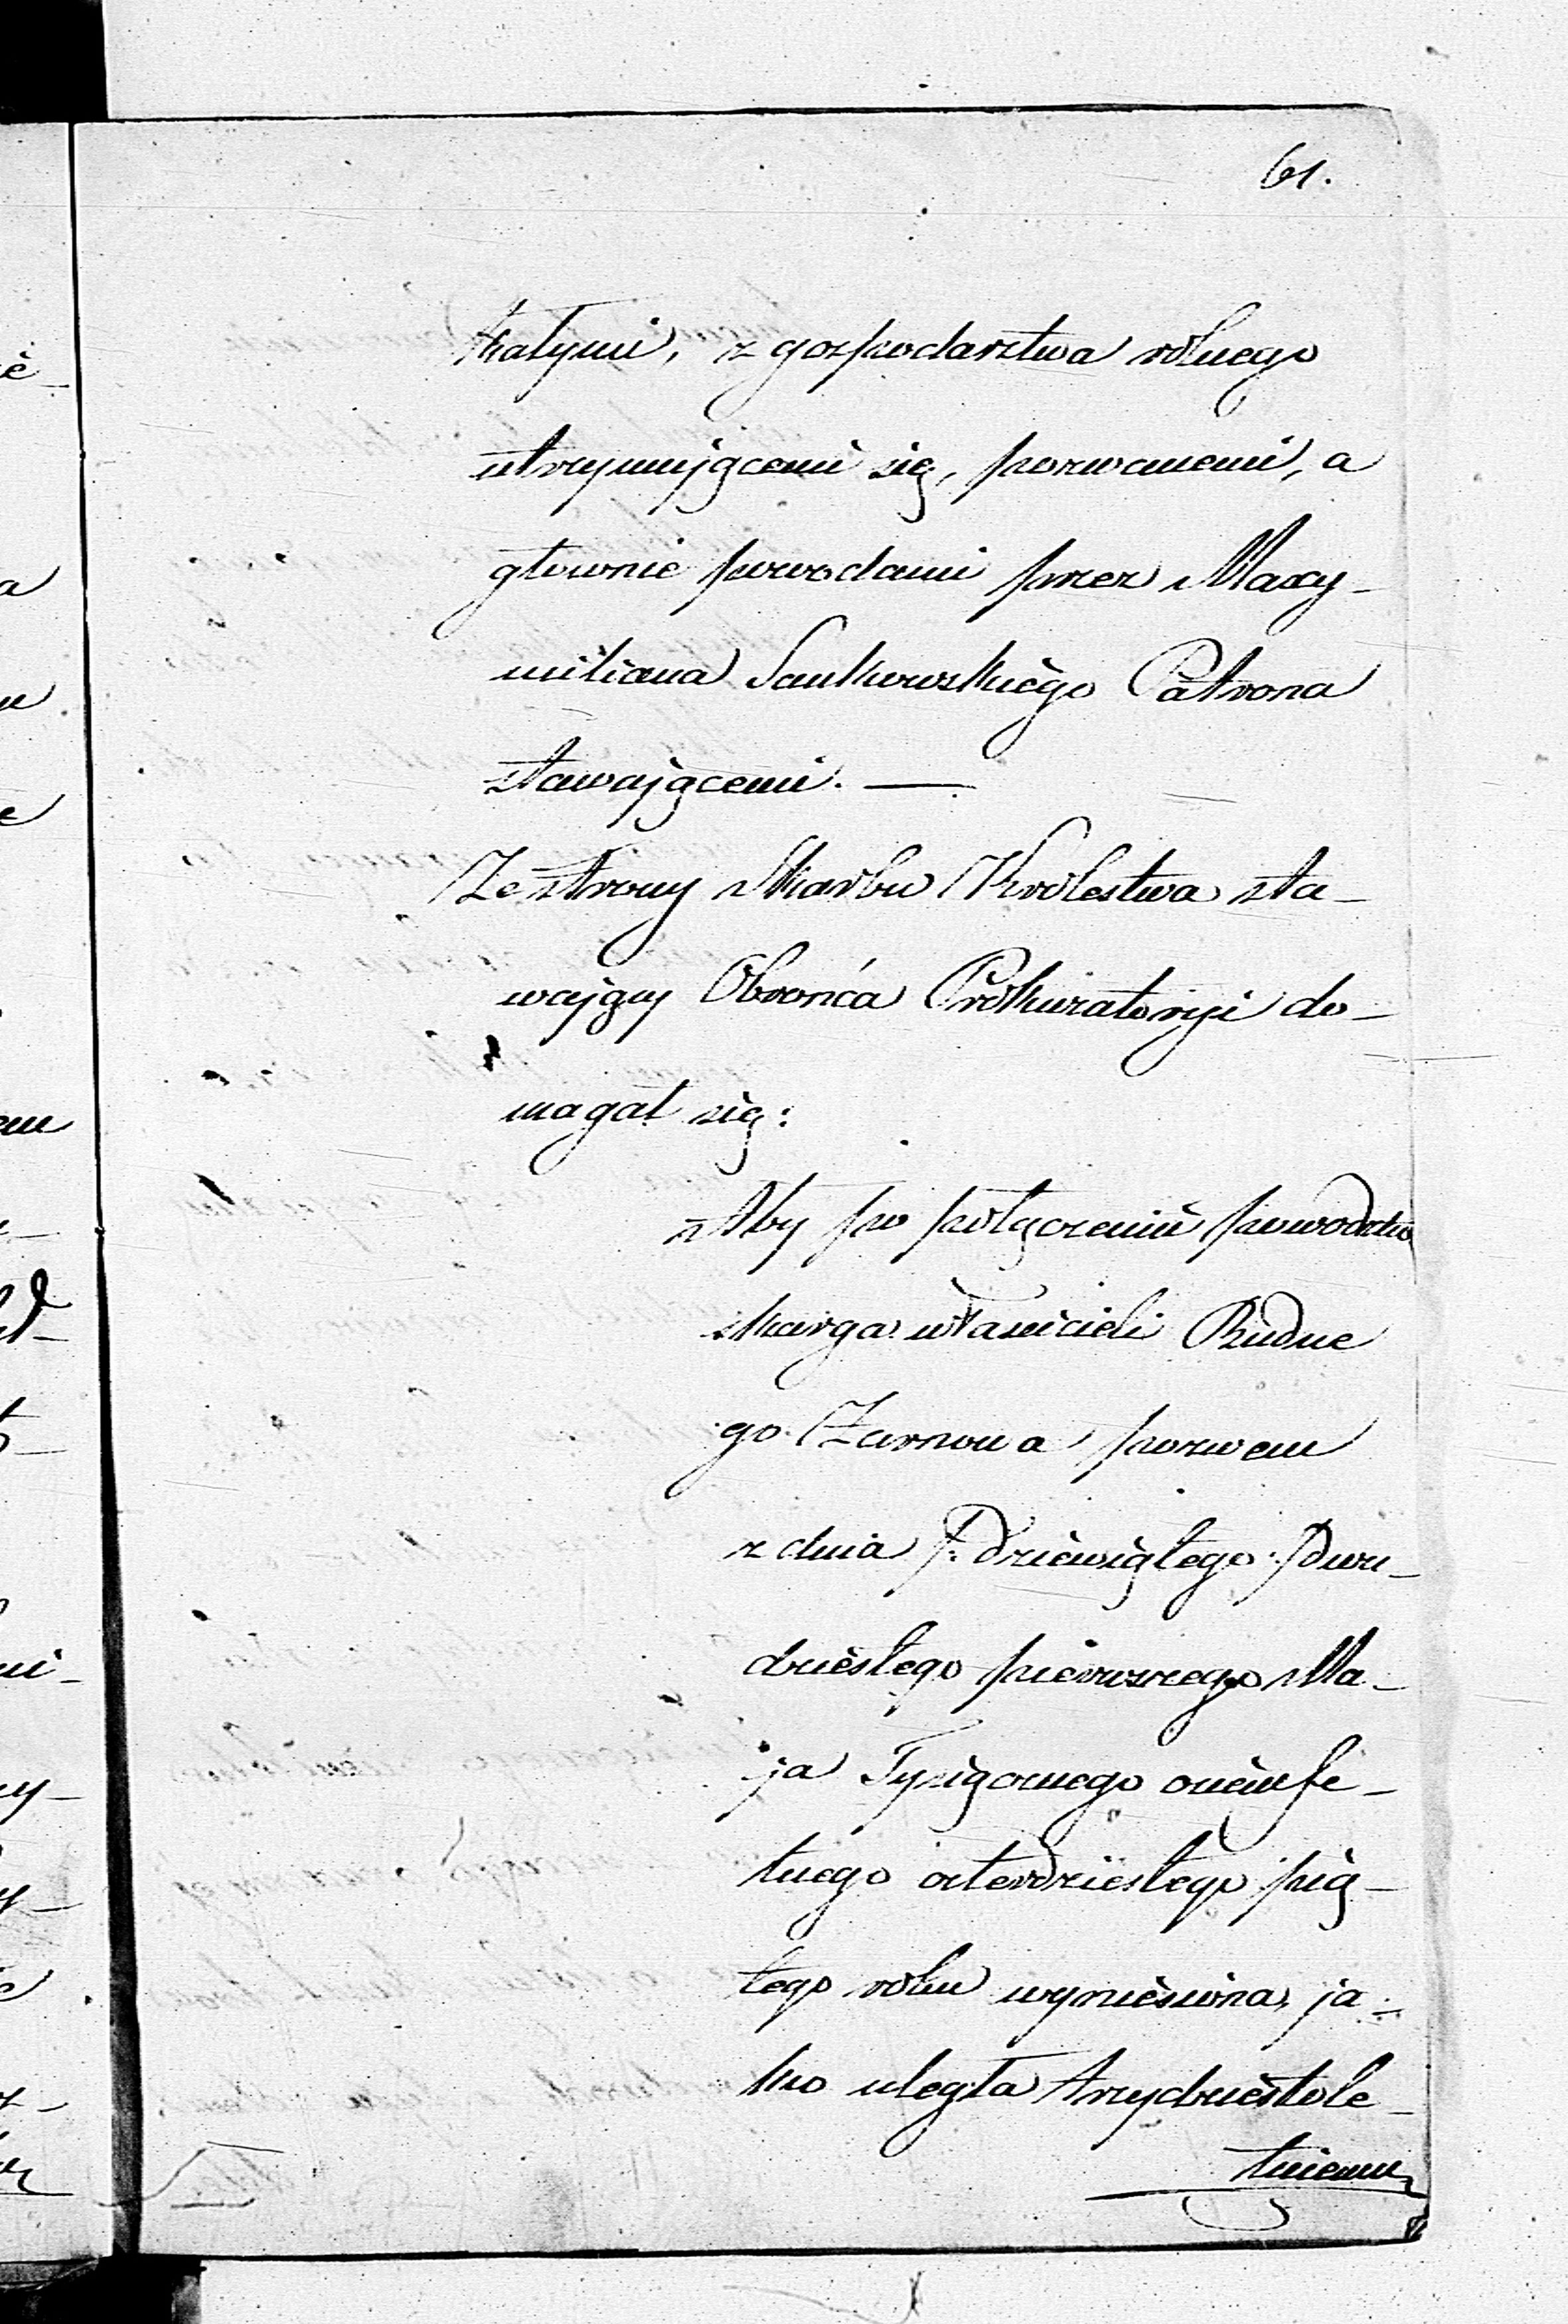 61.
kałymi, z gospodarztwa rolnego
utrzymującemi się, pozwanemi, a
głownie powodami przez Maxy-
miliana Sankowskiego Patrona
stawającemi. —
Ze strony Skarbu Krolestwa sta-
wający Obrońca Prokuratoryi do-
magał się:
Aby po połączeniu powodztw
skarga właścicieli Rudne
go Żarnowa pozwem
z dnia /: dziewiątego :/ dwu-
dziestego pierwszego Ma-
ja Tysiącznego ośmse-
tnego czterdziestego pią-
tego roku wyniesiona, ja-
ko uległa trzydziestole-
tniemu